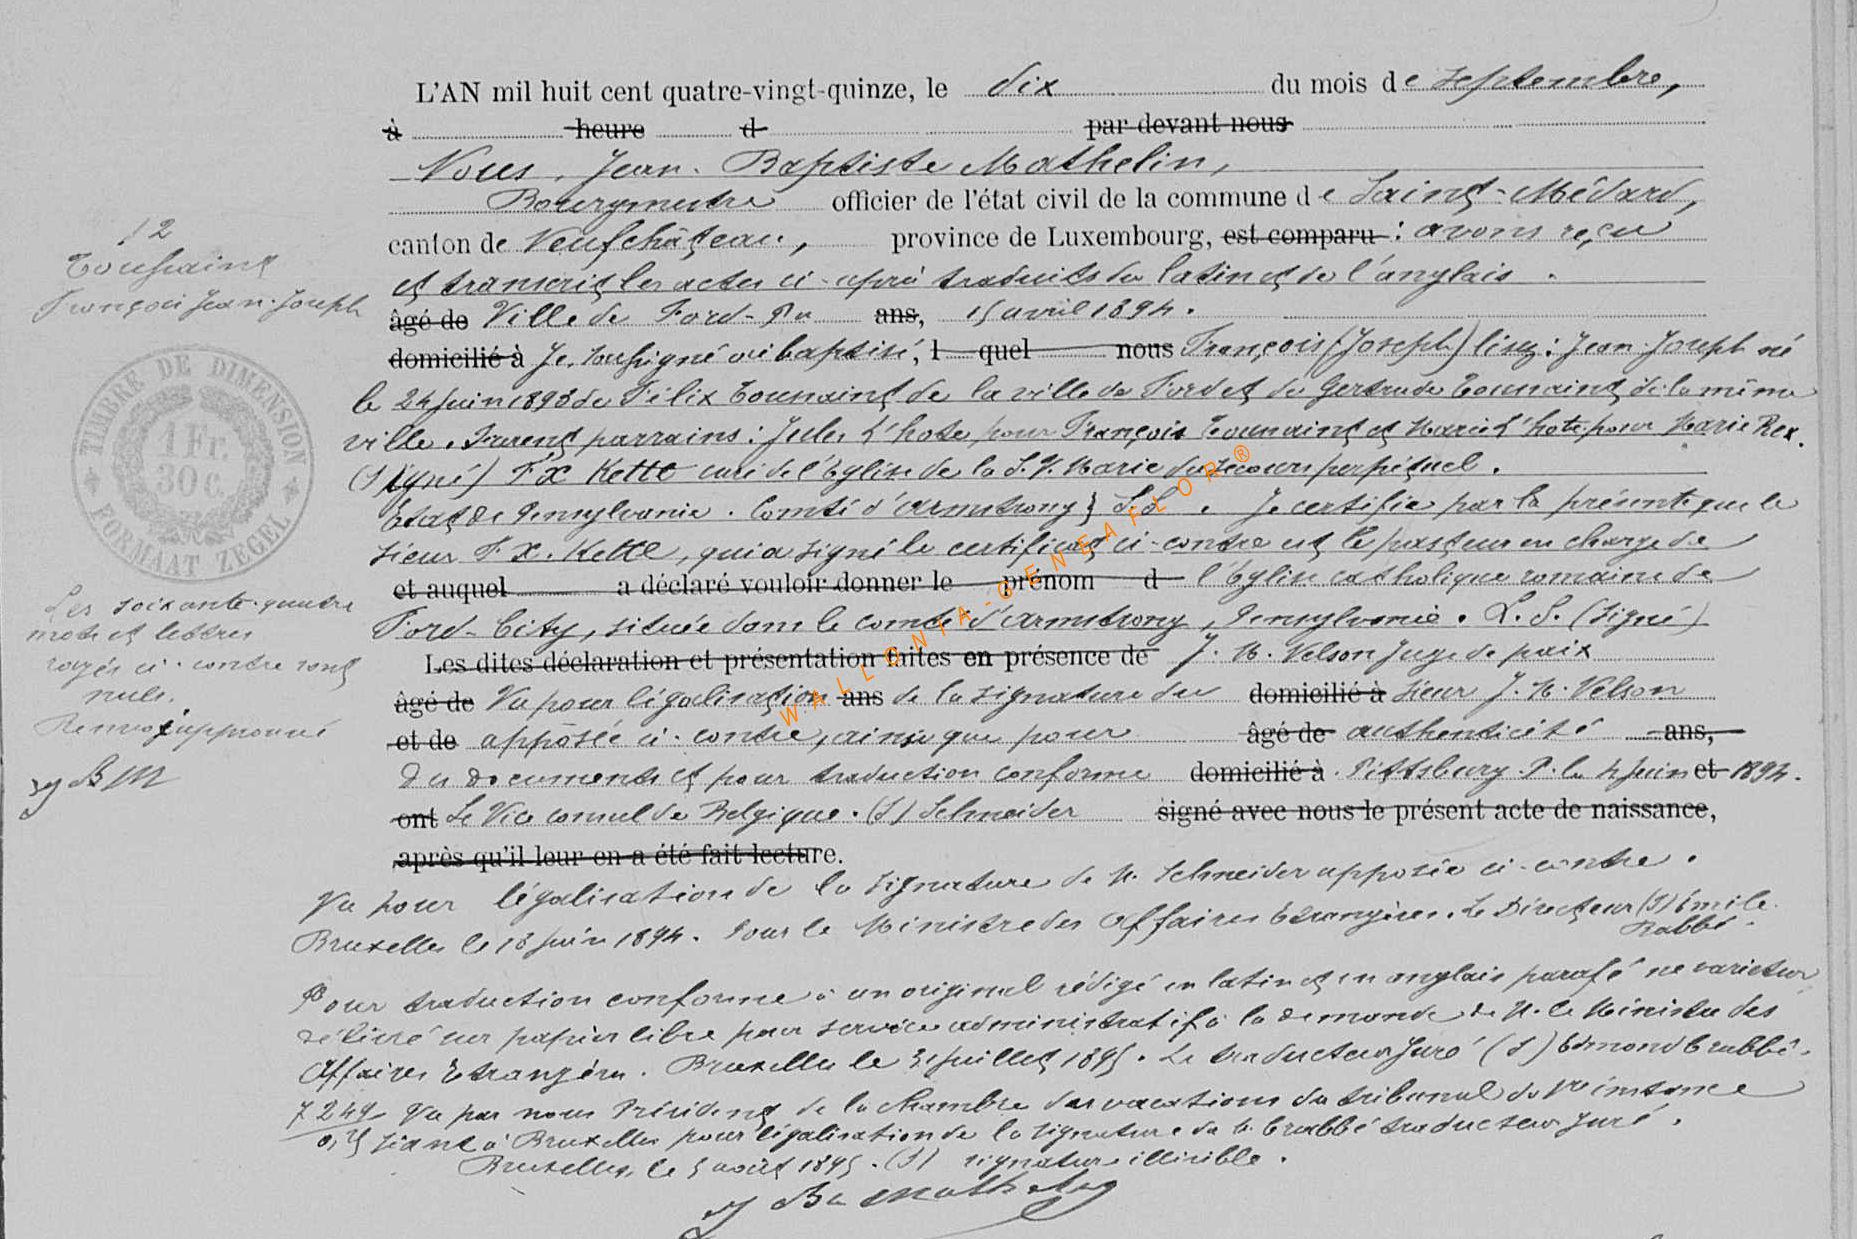 L'AN mil huit cent quatre-vingt-quinze, le dix du mois de septembre,
à heure d par devant nous
Nous, Jean-Baptiste Mathelin,
Bourgmestre officier de l'état civil de la commune de Saint-Médard,
canton de Neufchâteau, province de Luxembourg, est comparu : avons reçu
et transcrit les actes ci-après traduits du latin et de l'anglais.
12
Toussaint
François Jean-Joseph
âgé de Ville de Ford-Pa ans, 15 avril 1894.
domicilié à Je, soussigné ai baptisé, l quel nous François (Joseph) lisez : Jean-Joseph né
le 24 juin 1893 de Félix Toussaint de la ville de Ford et de Gertrude Toussaint de la même
ville. Furent parrains : Jules L'hote pour François Toussaint et Marie L'hote pour Marie Rex.
(Signé) F. X Kette curé de l'Eglise de la S. V. Marie du secours perpétuel.
Etat de Pensylvanie. Comté d'Armstrong } S.S. Je certifie par la présente que le
sieur F. X. Kette, qui a signé le certificat ci-contre est le pasteur en charge de
et auquel a déclaré vouloir donner le prénom d l'Eglise catholique romaine de
Ford-City, située dans le comté d'Armstrong, Pensylvanie. L. S. (signé)
Les dites déclaration et présentation faites en présence de J. H. Nelson Juge de paix
âgé de Vu pour légalisation ans de la signature du domicilié à sieur J. H. Nelson
et de apposée ci-contre, ainsi que pour âgé de authenticité ans,
des documents et pour traduction conforme domicilié à Pittsburg. P. le 4 juin et 1894.
ont Le Vice consul de Belgique. (S) Schneider signé avec nous le présent acte de naissance,
après qu'il leur en a été fait lecture.
TIMBRE DE DIMENSION
1 Fr.
30 C.
FORMAAT ZEGEL
Les soixante-quatre
mots et lettres
rayés ci-contre sont
nuls.
Renvoi approuvé
JBM
Vu pour légalisation de la signature de M. Schneider apposée ci-contre.
Bruxelles le 18 juin 1894. Pour le Ministre des Affaires Etrangères. Le Directeur (S) Emile
Rabbé.
Pour traduction conforme à un original rédigé en latin et en anglais parafé ne varietur
délivré sur papier libre pour service administratif à la demande de M. le Ministre des
Affaires Etrangères. Bruxelles le 31 juillet 1895. Le traducteur Juré (S) Edmond Crabbé.
7249 Vu par nous Président de la chambre des vacations du tribunal de 1re instance
0,25 séant à Bruxelles pour légalisation de la signature de M. Crabbé traducteur juré.
Bruxelles, le 5 août 1895. (S) signature illisible.
J Bte Mathelin
WALLONIA-GENEAFLOR®